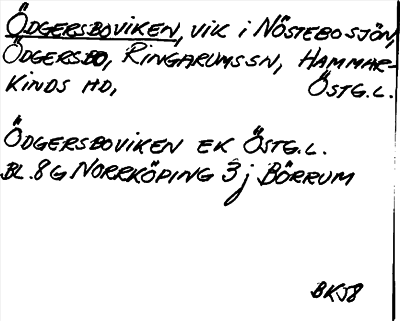 ÖDGERSBOVIKEN, VIK I NÖSTEBOSJÖN,
ÖDGERSBO, RINGARUMSSN, HAMMAR-
KINDS HD, ÖSTG.L.
ÖDGERSBOVIKEN EK ÖSTG.L.
BL.8G NORRKÖPING 3j BÖRRUM
BK58